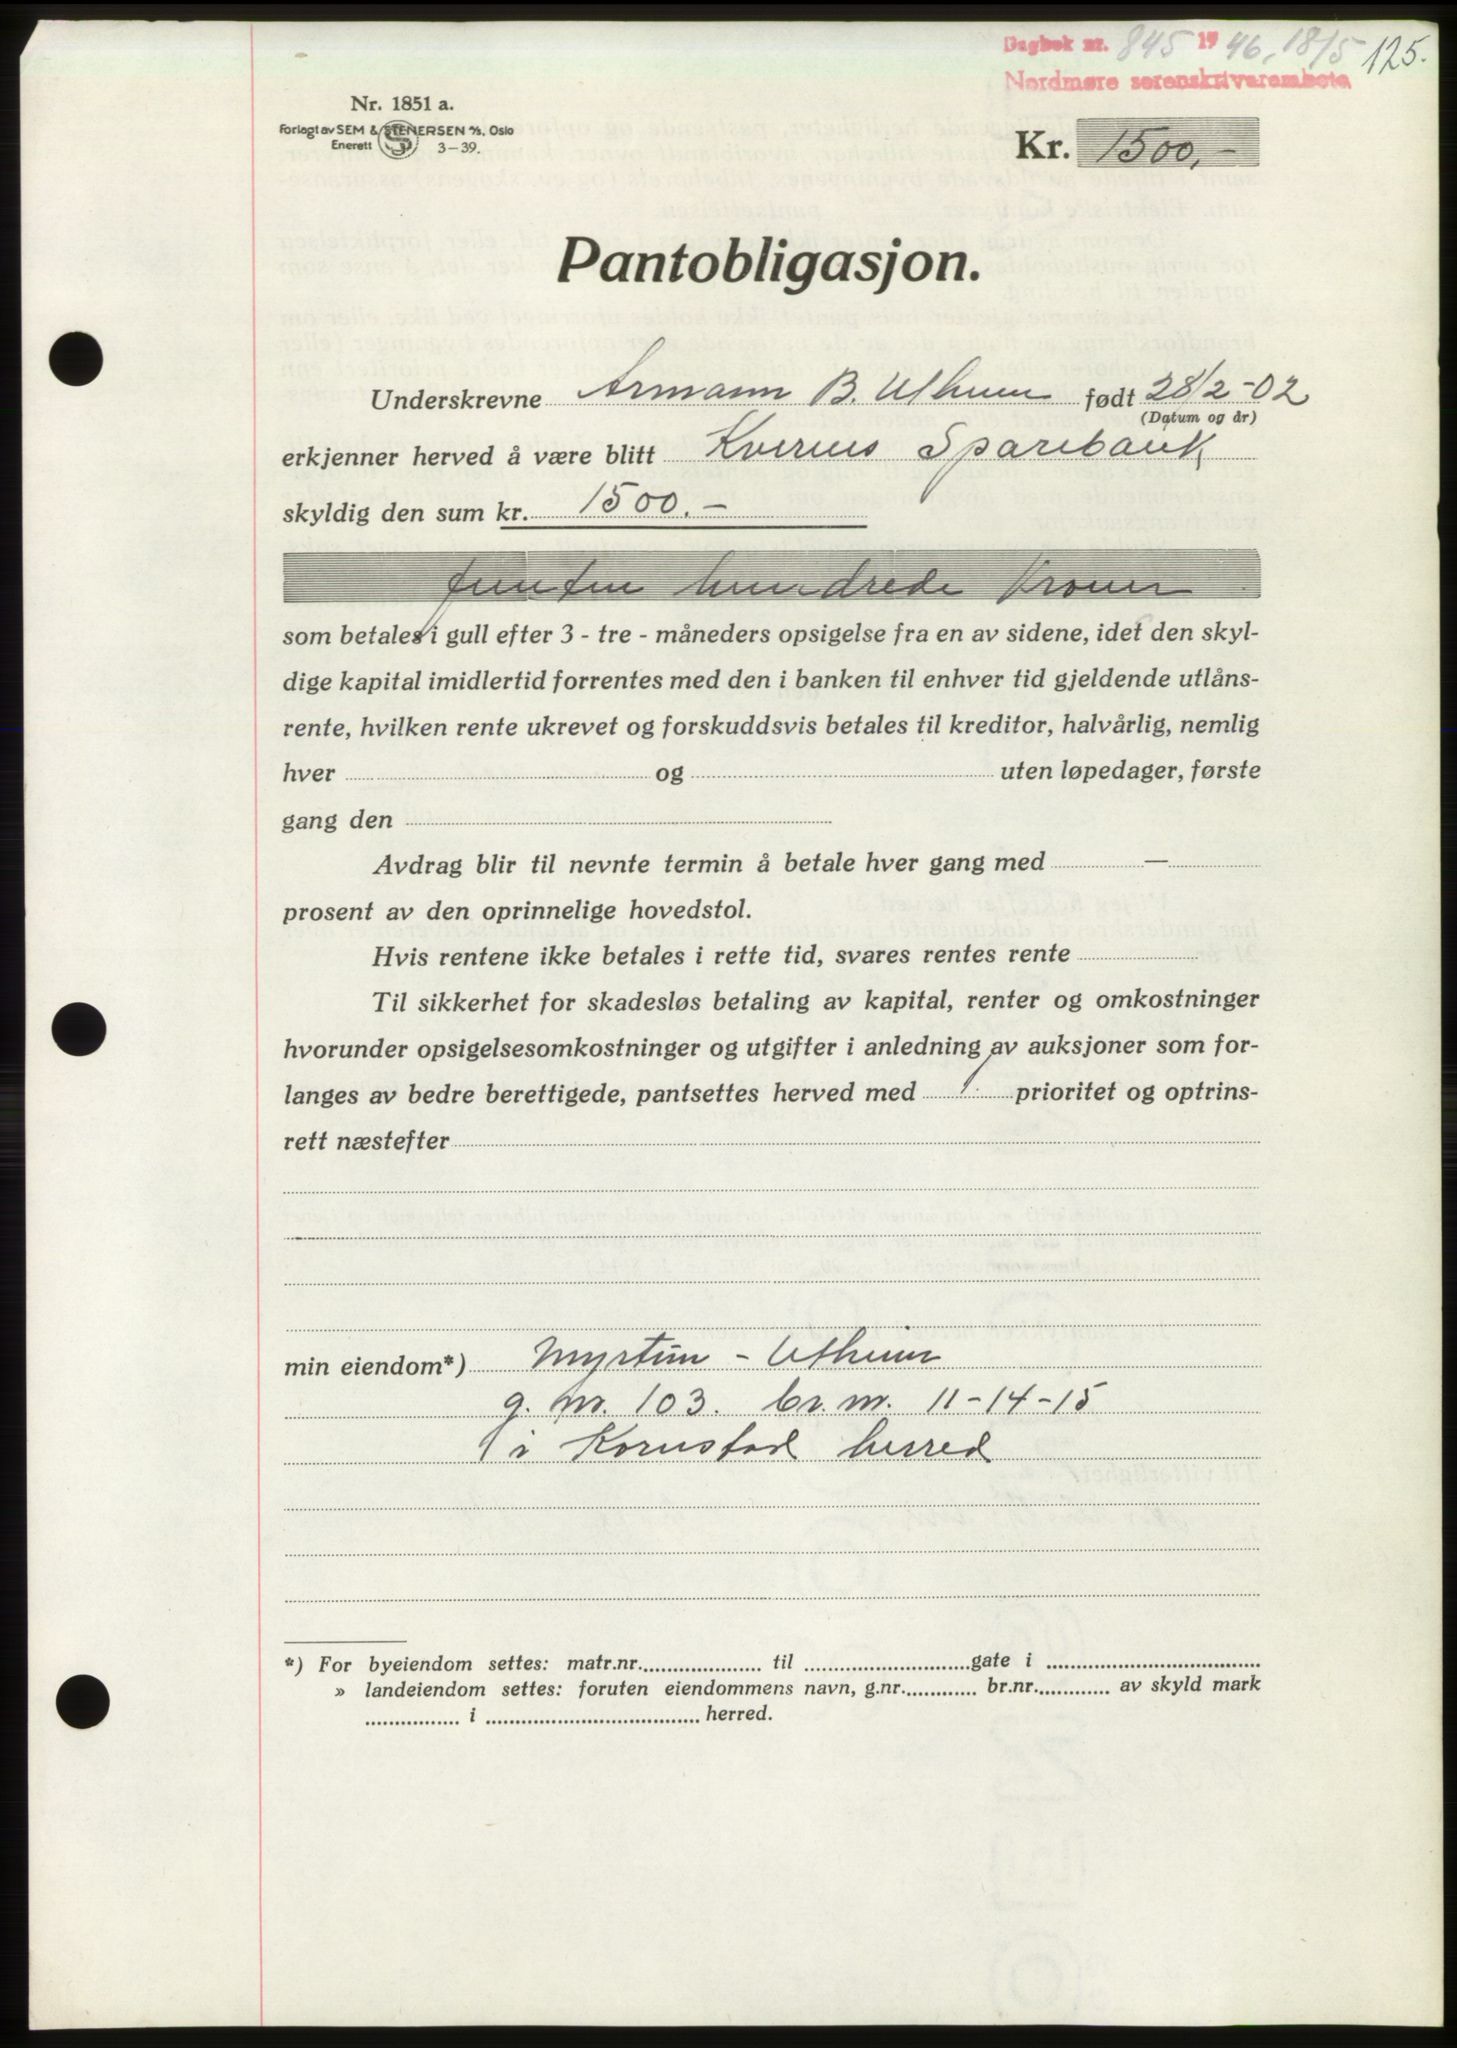 Dagbok nr. 845 1946, 18/5 125.
Nordmøre sorenskriverembete
Nr. 1851 a.
Forlagt av SEM & STENERSEN A/S, Oslo
Enerett 3–39.
Kr. 1500,-
Pantobligasjon.
Underskrevne Armann B. Utheim født 28/2-02
(Datum og år)
erkjenner herved å være blitt Kvernes Sparebank
skyldig den sum kr. 1500.-
femten hundrede Kroner
som betales i gull efter 3 - tre - måneders opsigelse fra en av sidene, idet den skyl-
dige kapital imidlertid forrentes med den i banken til enhver tid gjeldende utlåns-
rente, hvilken rente ukrevet og forskuddsvis betales til kreditor, halvårlig, nemlig
hver og uten løpedager, første
gang den
Avdrag blir til nevnte termin å betale hver gang med —
prosent av den oprinnelige hovedstol.
Hvis rentene ikke betales i rette tid, svares rentes rente
Til sikkerhet for skadesløs betaling av kapital, renter og omkostninger
hvorunder opsigelsesomkostninger og utgifter i anledning av auksjoner som for-
langes av bedre berettigede, pantsettes herved med 1. prioritet og optrins-
rett næstefter
min eiendom*) Myrtun - Utheim
g. nr. 103. br. nr. 11-14-15
i Kornstad herred
*) For byeiendom settes: matr.nr. til gate i
» landeiendom settes: foruten eiendommens navn, g.nr. br.nr. av skyld mark
i herred.